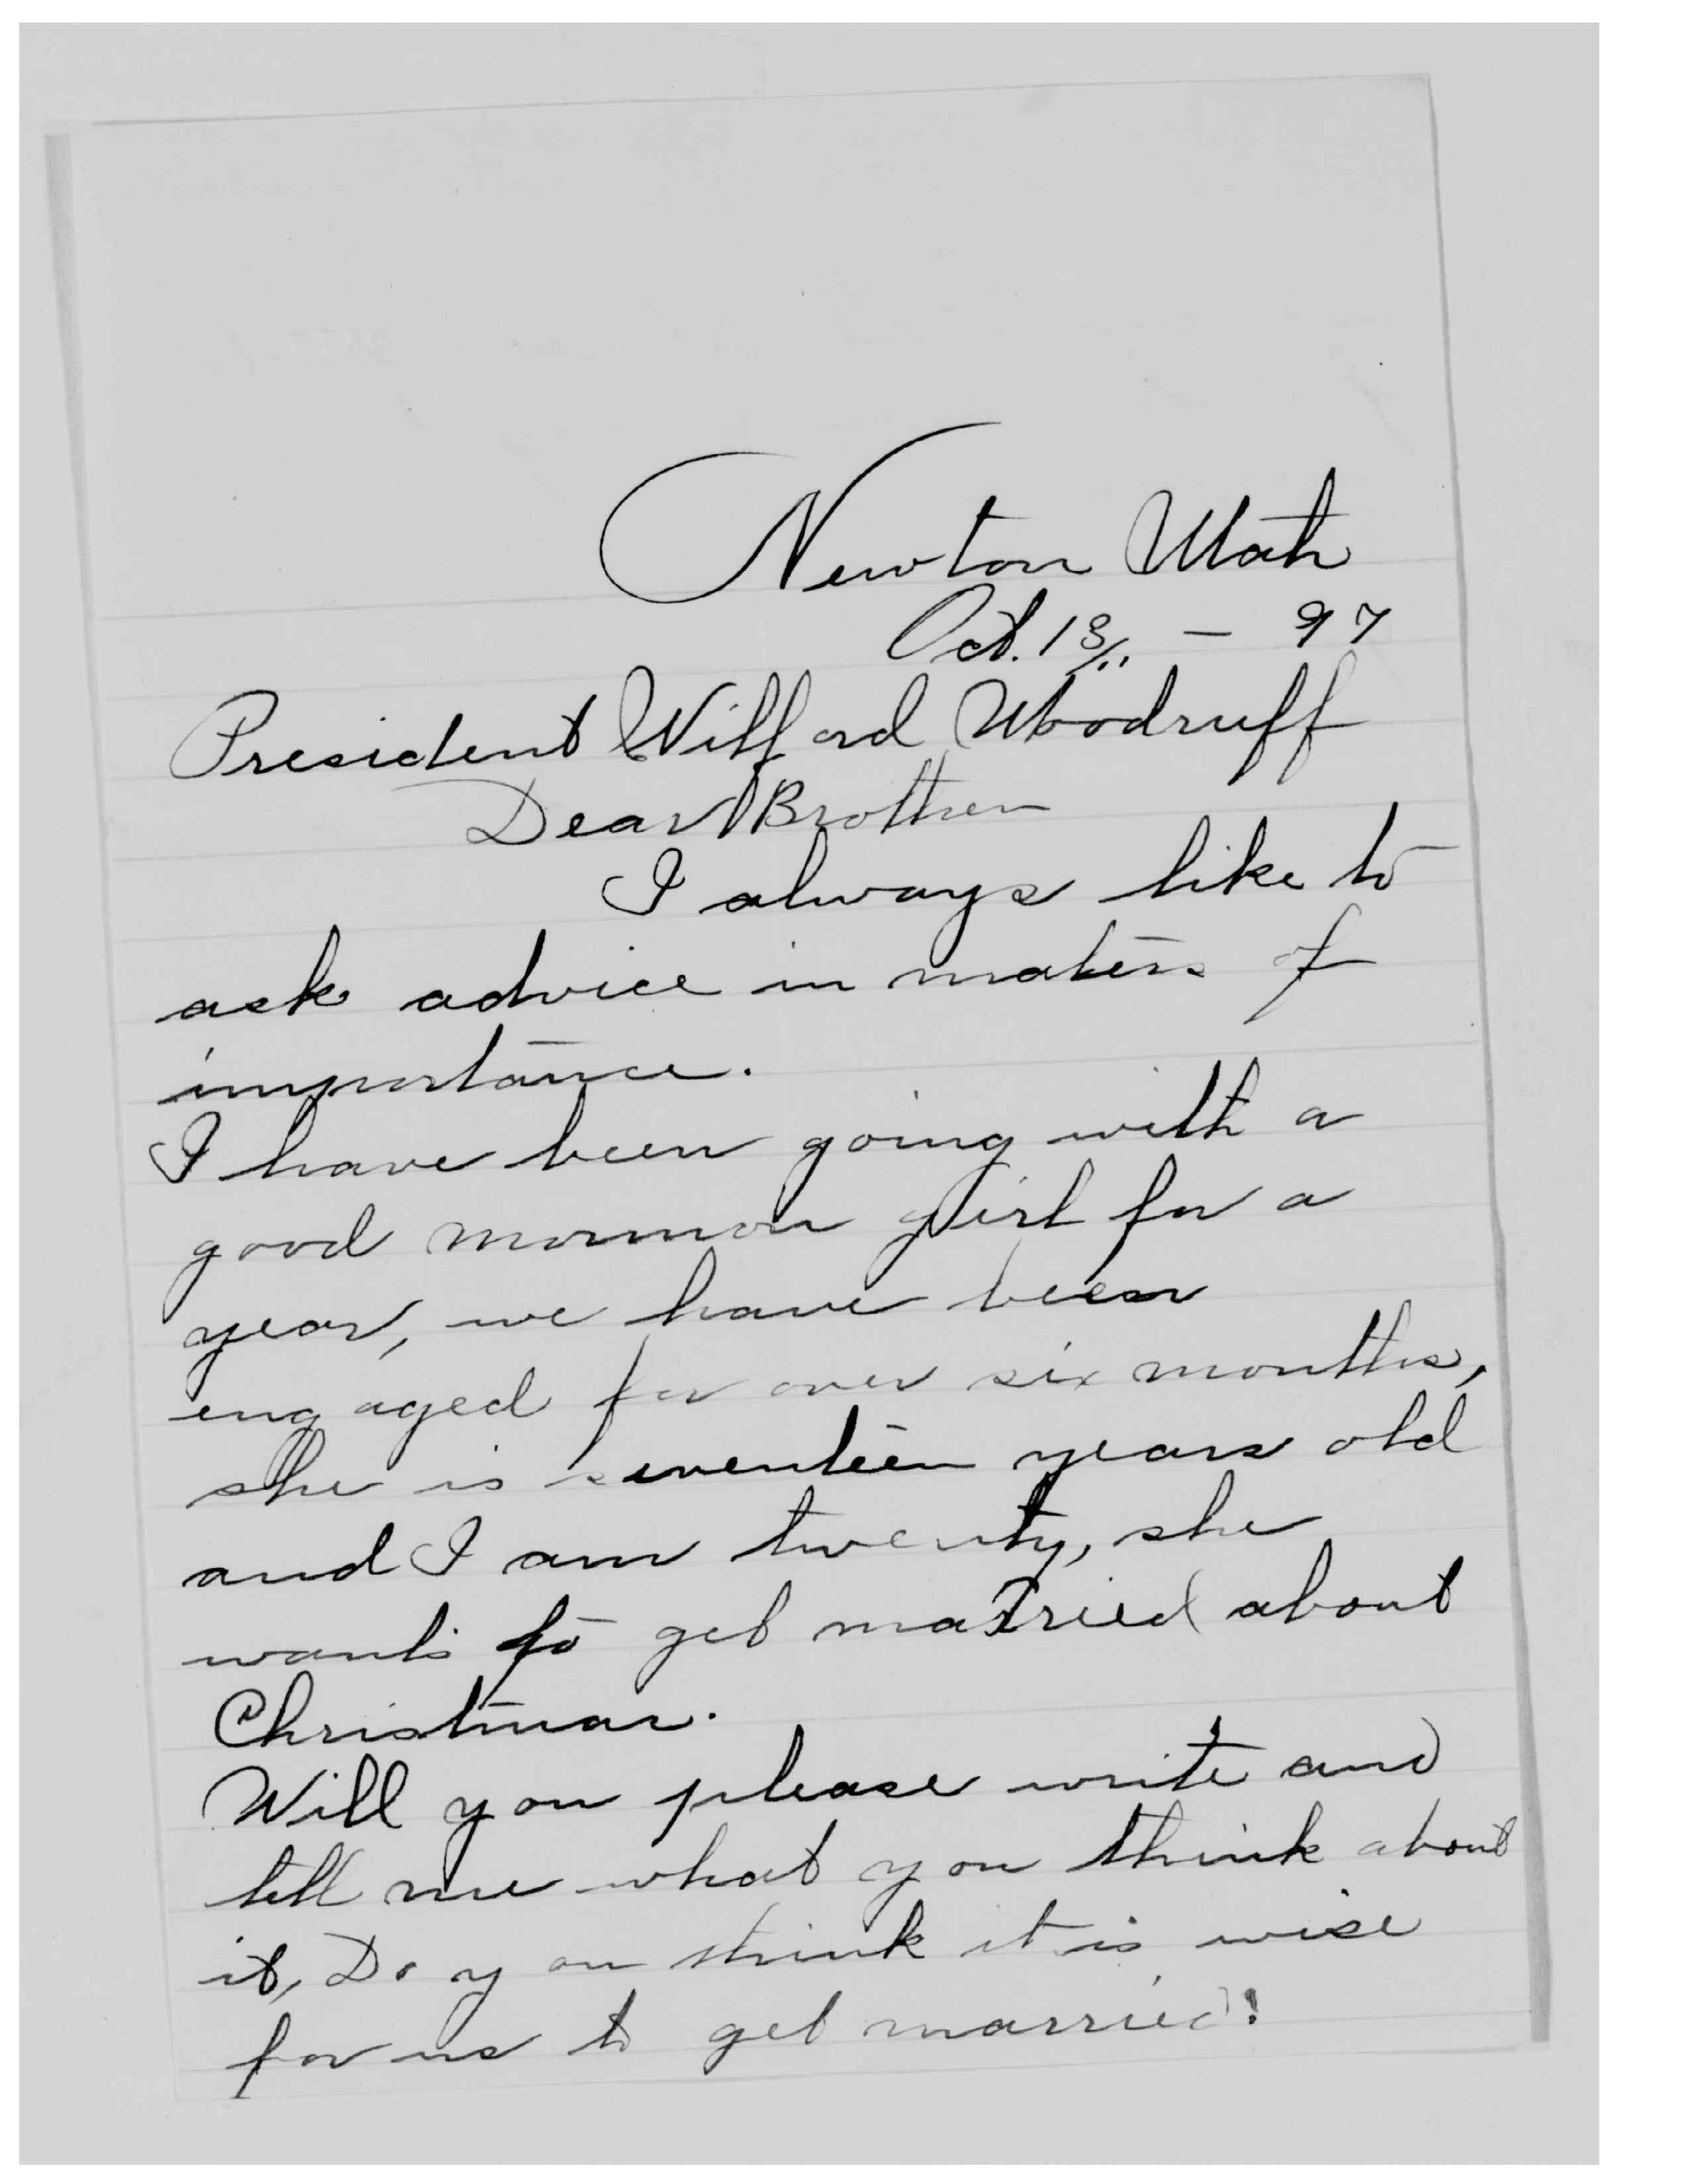 Newton Utah
Oct. 13/.. — 97
President Wilford Woodruff
Dear Brother
I always like to
ask advice in maters of
importance.
I have been going with a
good mormon girl for a
year, we have been
engaged for over six months,
she is seventeen years old
and I am twenty, she
wants to get married about
Christmas.
Will you please write and
tell me what you think about
it, Do you think it is wise
for us to get married!